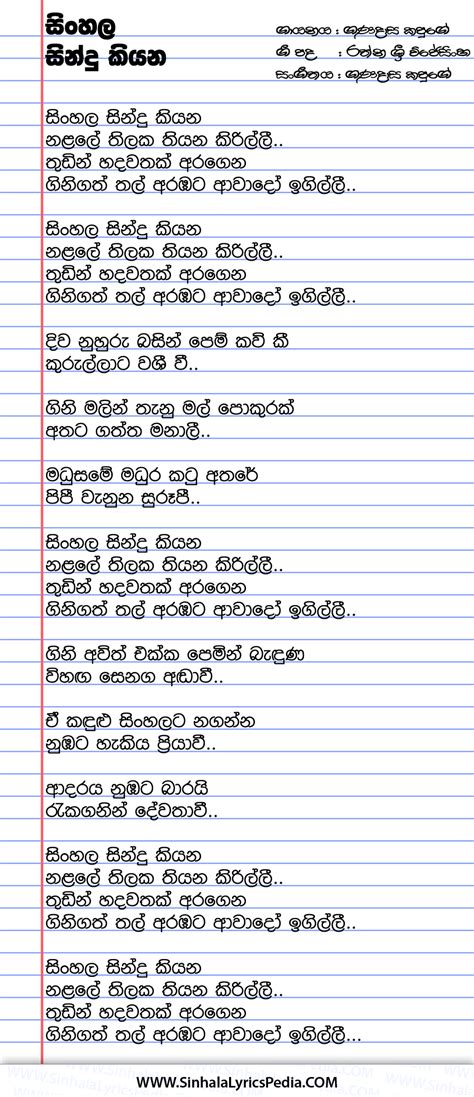 සිංහල
සින්දු කියන
ගායනය : ගුණදාස කපුගේ
ගී පද : රත්න ශ්‍රී විජේසිංහ
සංගීතය : ගුණදාස කපුගේ
සිංහල සින්දු කියන
නළලේ තිලක තියන කිරිල්ලී..
තුඩින් හදවතක් අරගෙන
ගිනිගත් තල් අරඹට ආවාදෝ ඉගිල්ලී..
සිංහල සින්දු කියන
නළලේ තිලක තියන කිරිල්ලී..
තුඩින් හදවතක් අරගෙන
ගිනිගත් තල් අරඹට ආවාදෝ ඉගිල්ලී..
දිව නුහුරු බසින් පෙම් කවි කී
කුරුල්ලාට වශී වී..
ගිනි මලින් තැනු මල් පොකුරක්
අතට ගත්ත මනාලී..
මධුසමේ මධුර කටු අතරේ
පිපී වැනුන සුරූපී..
සිංහල සින්දු කියන
නළලේ තිලක තියන කිරිල්ලී..
තුඩින් හදවතක් අරගෙන
ගිනිගත් තල් අරඹට ආවාදෝ ඉගිල්ලී..
ගිනි අවිත් එක්ක පෙමින් බැඳුණ
විහඟ සෙනග අඬාවී..
ඒ කඳුළු සිංහලට නගන්න
නුඹට හැකිය ප්‍රියාවී..
ආදරය නුඹට බාරයි
රැකගනින් දේවතාවී..
සිංහල සින්දු කියන
නළලේ තිලක තියන කිරිල්ලී..
තුඩින් හදවතක් අරගෙන
ගිනිගත් තල් අරඹට ආවාදෝ ඉගිල්ලී..
සිංහල සින්දු කියන
නළලේ තිලක තියන කිරිල්ලී..
තුඩින් හදවතක් අරගෙන
ගිනිගත් තල් අරඹට ආවාදෝ ඉගිල්ලී...
WWW.SinhalaLyricsPedia.COM